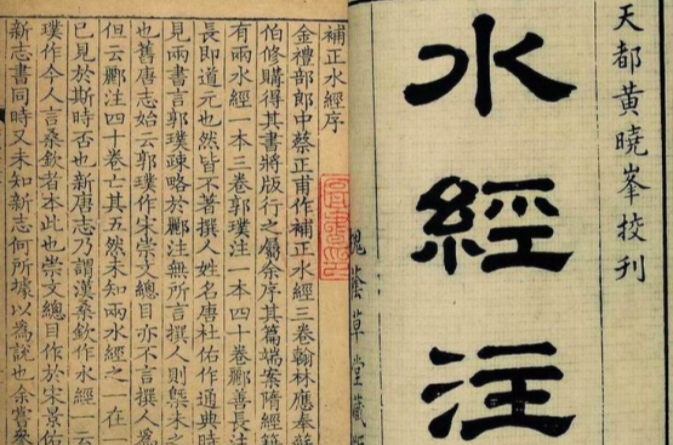 天都黄曉峯挍刊
水經注
槐蔭草堂藏版
補正水經序
金禮部郎中蔡正甫作補正水經三卷翰林應奉蘇
伯修購得其書將版行之屬余序其篇端案隋經籍
有兩水經一本三卷郭璞注一本四十卷酈善長注
長即道元也然皆不著撰人姓名唐杜佑作通典時
見兩書言郭璞疎略於酈注無所言撰人則槩未之
也舊唐志始云郭璞作宋崇文總目亦不言撰人為
但云酈注四十卷亡其五然未知兩水經之一在一
已見於斯時否也新唐志乃謂漢桑欽作水經 云
璞作今人言桑欽者本此也崇文總目作於宋景佑
新志書同時又未知新志何所據以為說也余嘗叅